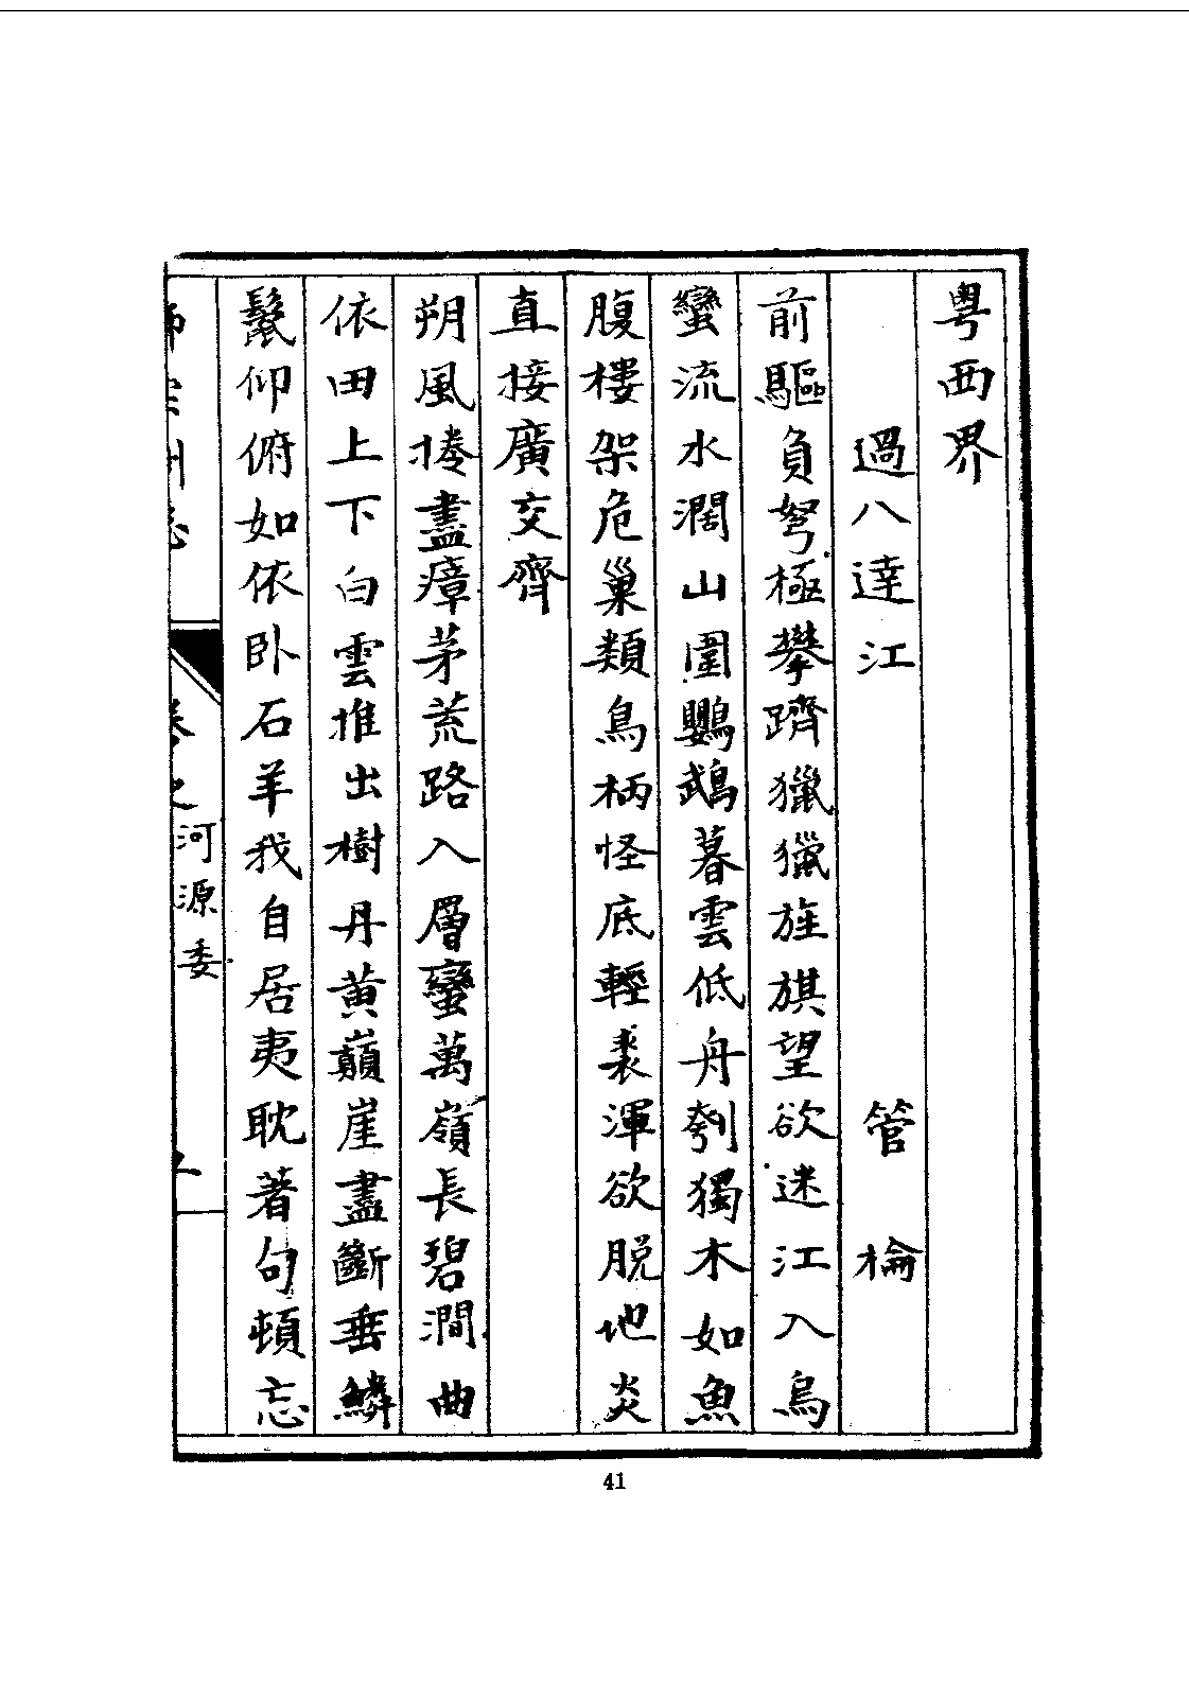 粵西界
過八達江 管棆
前驅負弩極攀躋獵獵旌旗望欲迷江入烏
蠻流水濶山圍鸚鵡暮雲低舟刳獨木如魚
腹樓架危巢類鳥柄怪底輕裘渾欲脱地炎
直接廣交齊
朔風捲盡瘴茅荒路入層蠻萬嶺長碧澗曲
依田上下白雲推出樹丹黃巔崖盡斷垂鱗
鬛仰俯如依卧石羊我自居夷耽著句頓忘
師宗州志 卷之 河源委
41